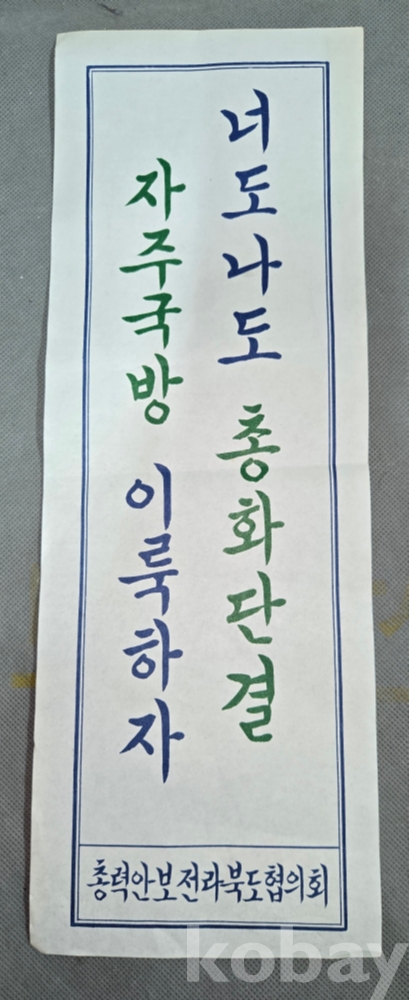 너도나도 총화단결
자주국방 이룩하자
총력안보전라북도협의회
kobay